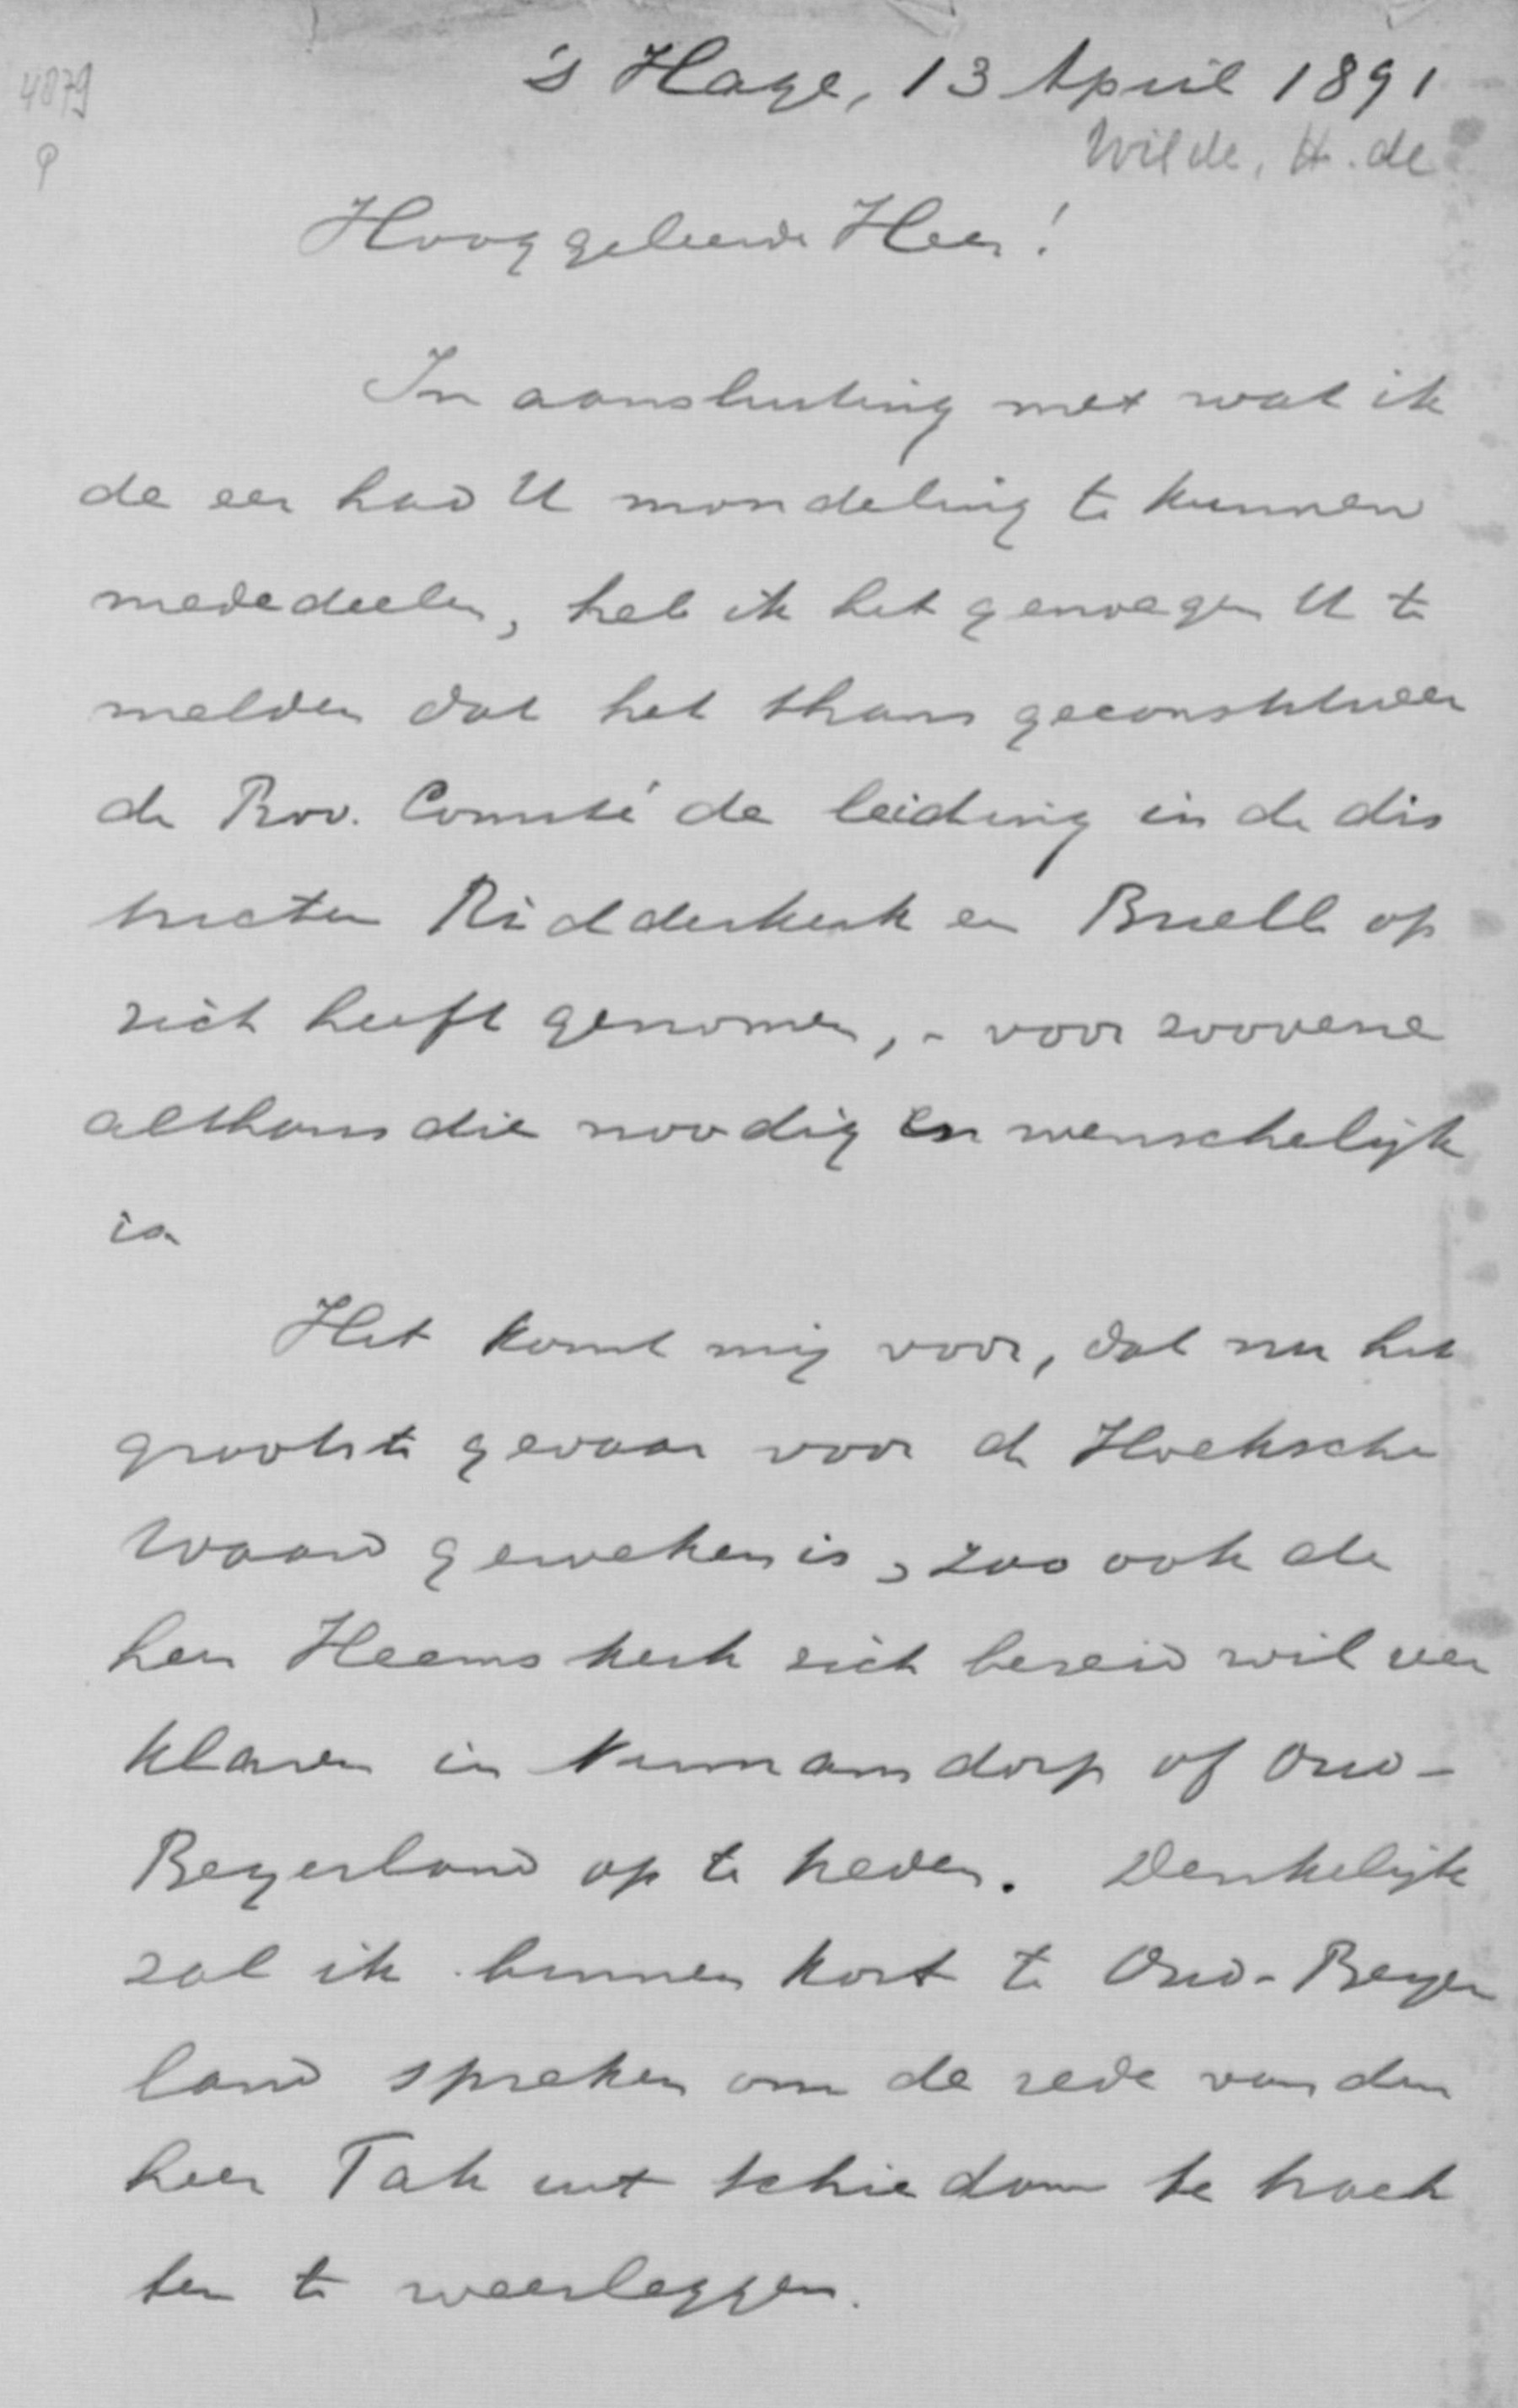 4879
's Hage, 13 April 1891
Wilde, H. de
Hooggeleerde Heer!
In aansluiting met wat ik
de eer had U mondeling te kunnen
mededeelen, heb ik het genoegen U te
melden dat het thans geconstitueer
de Prov. Comité de leiding in de dis
tricten Ridderkerk en Brielle op
zich heeft genomen, - voor zoovere
althans die noodig en wenschelijk
is.
Het komt mij voor, dat nu het
grootste gevaar voor de Hoeksche
Waard geweken is, zoo ook de
heer Heemskerk zich bereid wil ver
klaren in Numansdorp of Oud-
Beyerland op te treden. Denkelijk
zal ik binnen kort te Oud-Beyer
land spreken om de rede van den
heer Tak uit Schiedam te trach
ten te weerleggen.